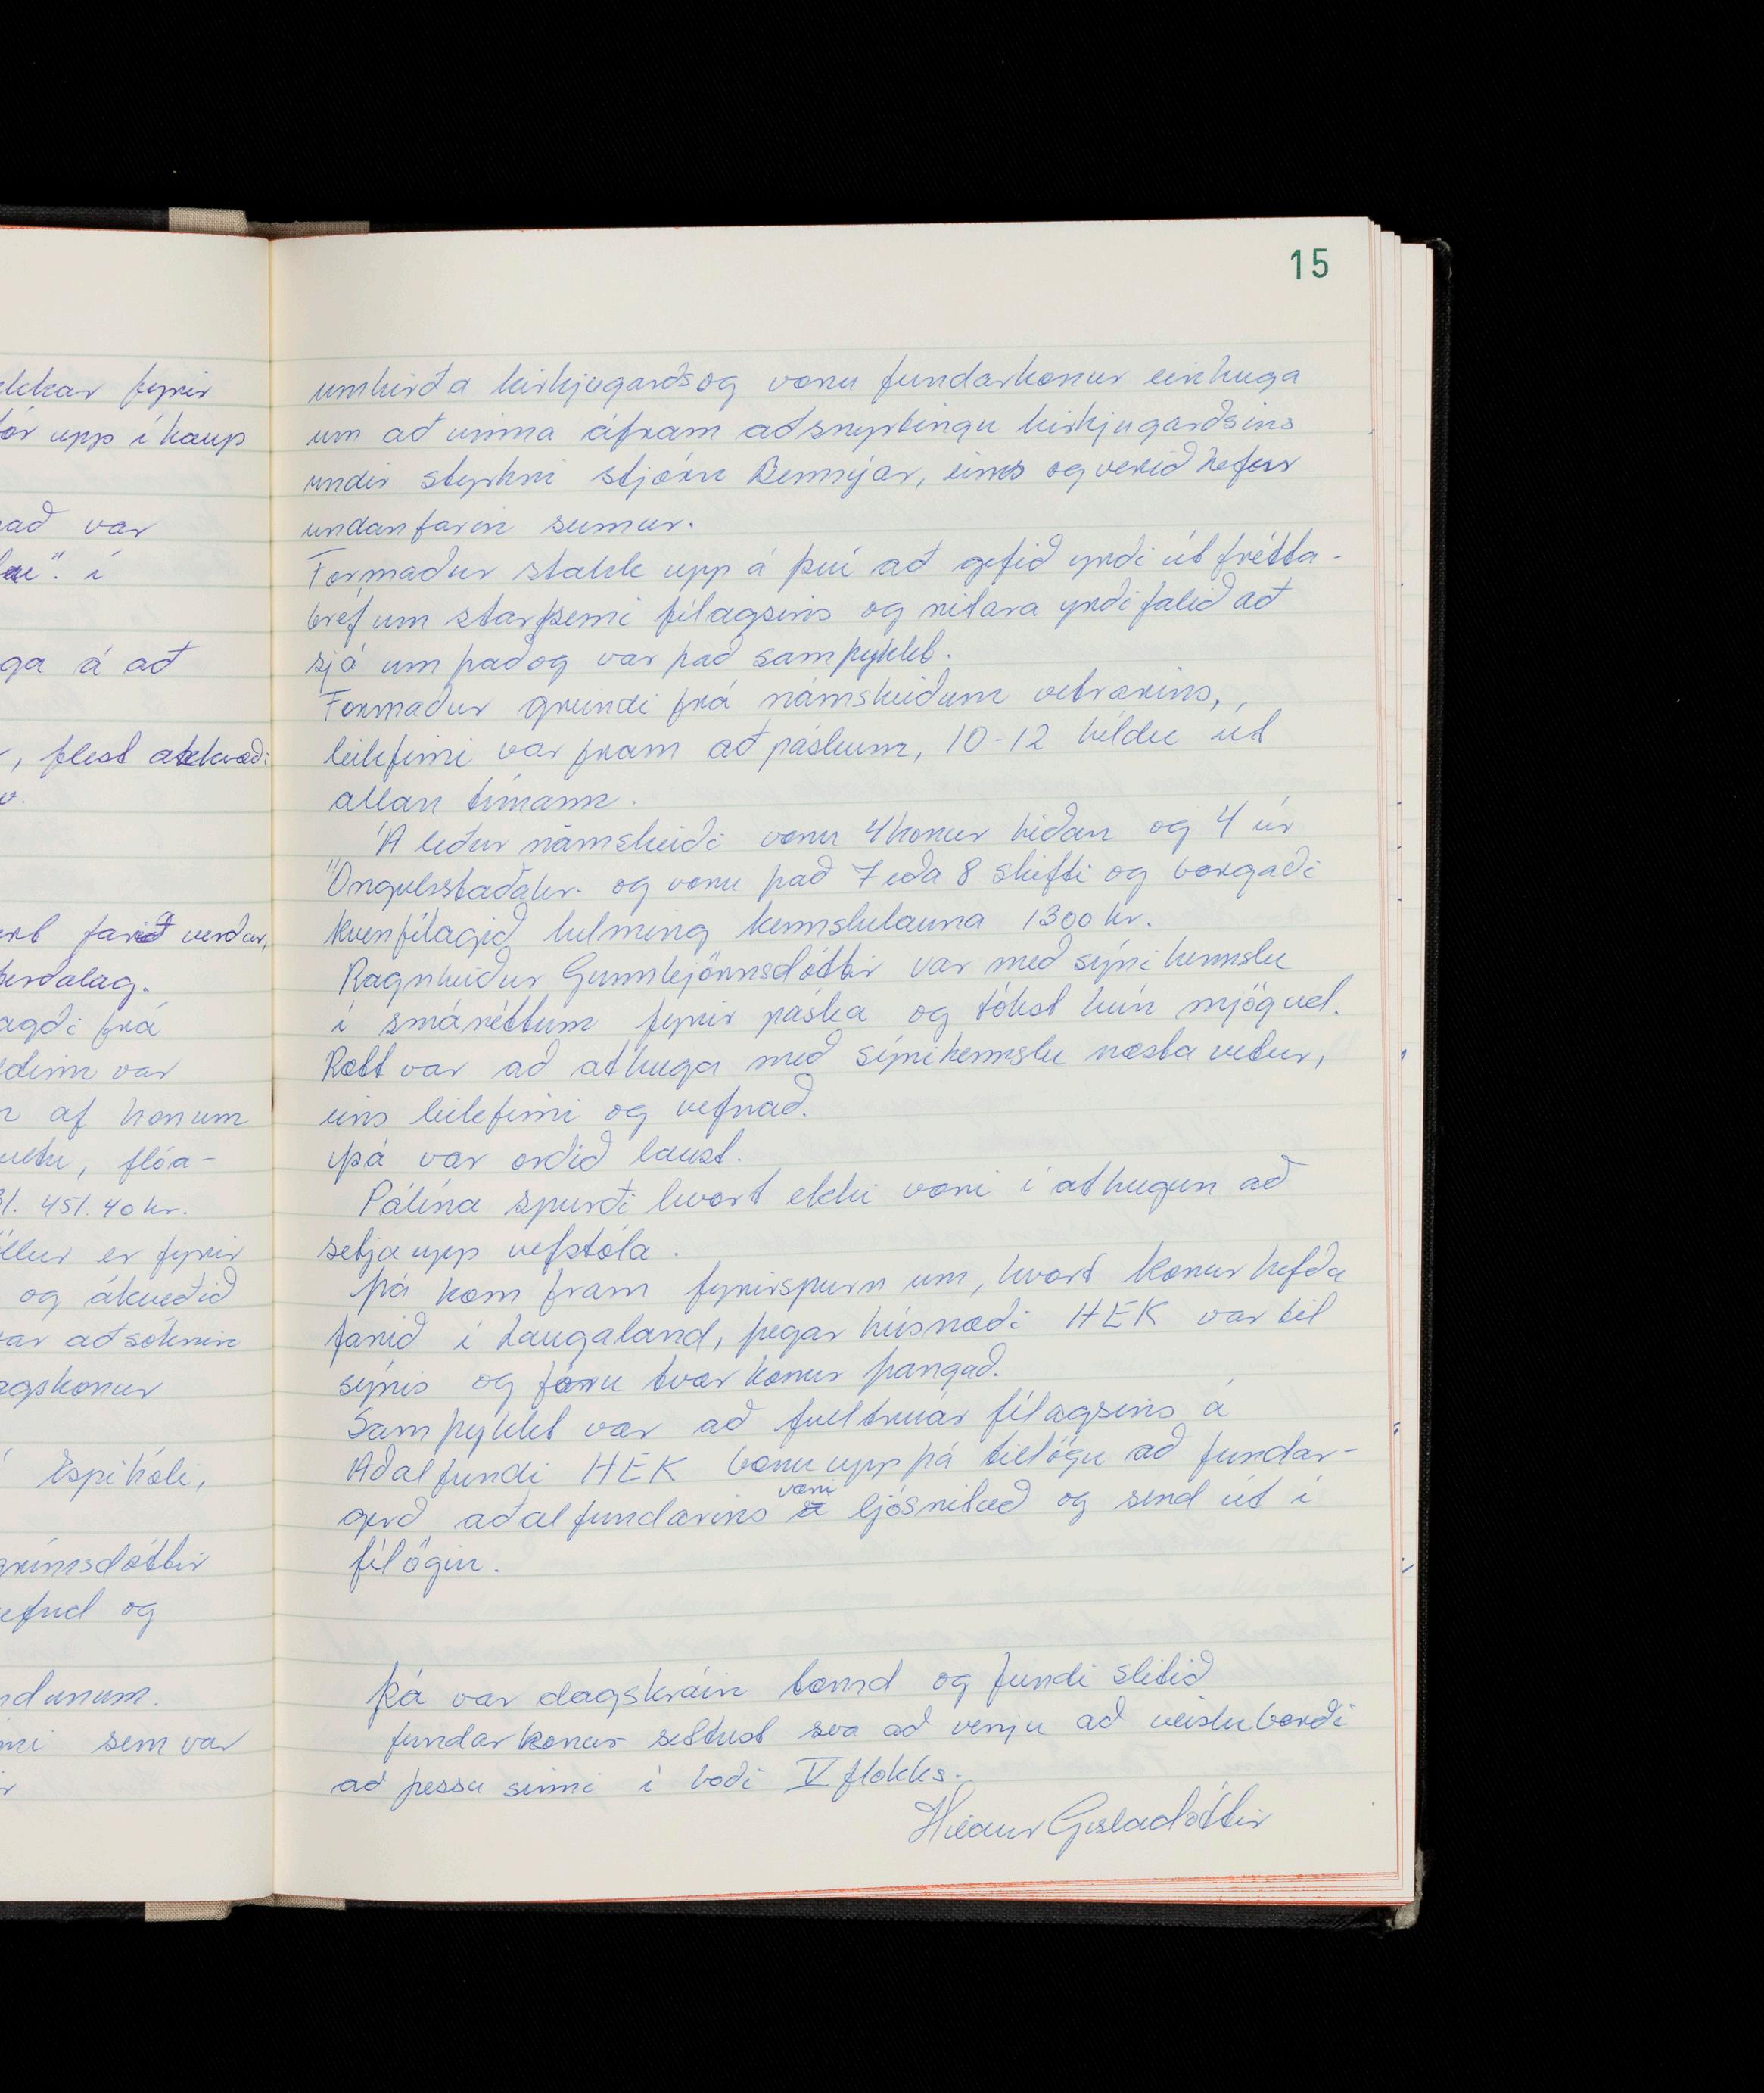 15
ekkar fyrir
fór upp í kaup
að var
í
ga á að
, flest atkvæði
farið verður,
ferðalag.
agði frá
var
af honum
flóa-
451.40 kr.
er fyrir
og ákveðið
var aðsóknin
agskonur
Espihóli,
grímsdóttir
og
ndunum.
sem var
umhirða kirkjugarðs og voru fundarkonur einhuga
um að vinna áfram að snyrtingu kirkjugarðsins
undir styrkri stjórn Bennýjar, eins og verið hefur
undanfarin sumur.
Formaður stakk upp á því að gefið yrði út frétta-
bréf um starfsemi félagsins og ritara yrði falið að
sjá um það og var það samþykkt.
Formaður greindi frá námskeiðum vetrarins,
leikfimi var fram að páskum, 10-12 héldu út
allan tímann.
Á leður námskeiði voru 4 konur héðan og 4 úr
Öngulsstaðahr. og voru það 7 eða 8 skifti og borgaði
kvenfélagið helming kennslulauna 1300 kr.
Ragnheiður Gunnbjörnsdóttir var með sýnikennslu
í smáréttum fyrir páska og tókst hún mjög vel.
Rætt var að athuga með sýnikennslu næsta vetur,
eins leikfimi og vefnað.
Þá var orðið laust.
Pálína spurði hvort ekki væri í athugun að
setja upp vefstóla.
Þá kom fram fyrirspurn um, hvort konur hefða
farið í Laugaland, þegar húsnæði HEK var til
sýnis og fóru tvær konur þangað.
Samþykkt var að fulltrúar félagsins á
Aðalfundi HEK bæru upp þá tillögu að fundar-
gerð aðalfundarins væri ljósrituð og send út í
félögin.
Þá var dagskráin tæmd og fundi slitið
fundarkonur settust svo að venju að veisluborði
að þessu sinni í boði V flokks.
Gísladóttir